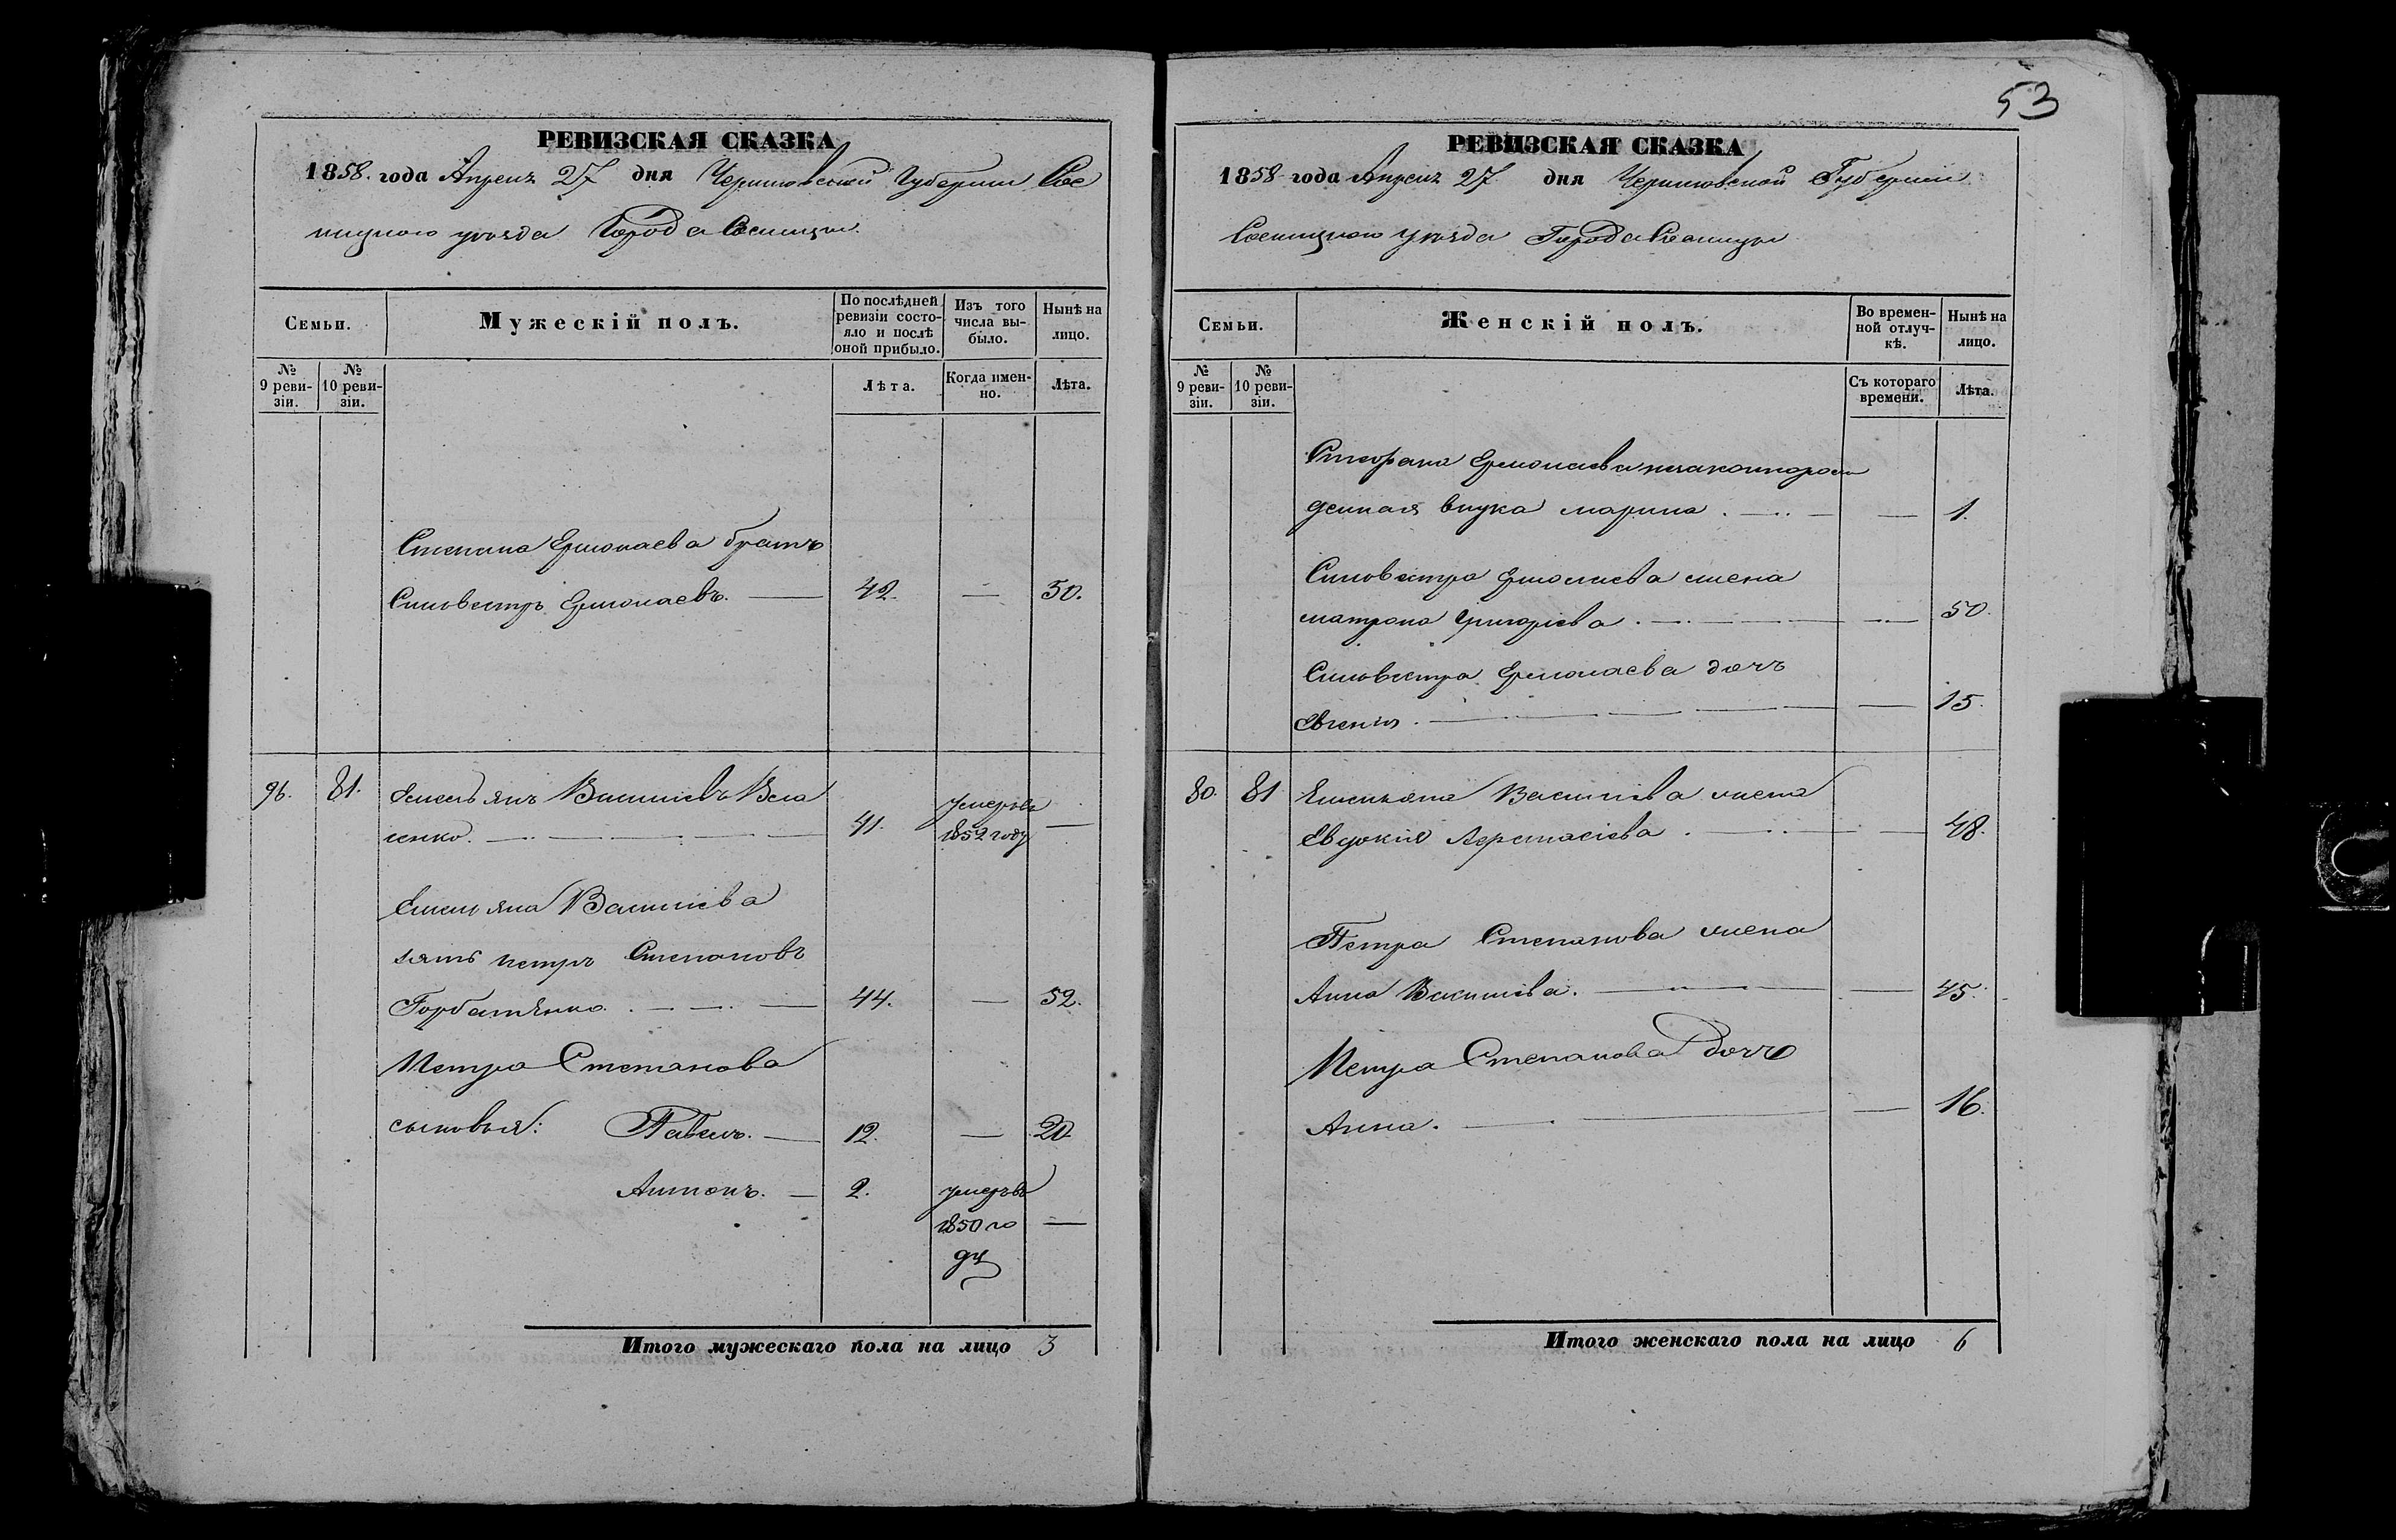 53
РЕВИЗСКАЯ СКАЗКА
1858. года Апреля 27 дня Черниговской Губернии Сос
ницкого уезда Города Сосницы.
Семьи.
Мужескій полъ.
По послѣдней
ревизіи состо-
яло и послѣ
оной прибыло.
Изъ того
числа вы-
было.
Нынѣ на
лицо.
№
9 реви-
зіи.
№
10 реви-
зіи.
Лѣта.
Когда имен-
но.
Лѣта.
Степана Ермолаева братъ
Силвестръ Ермолаевъ. — 42. — 50.
96. 81. Емельянъ Василіевъ Вла
сенко. — 41. умеръ въ 1852 году —
Емельяна Василіева
зять петръ Степановъ
Горбатѣнко. — 44. — 52.
Петра Степанова
сыновья: Павелъ. — 12. — 20
Антонъ. — 2. умеръ въ
1850 го —
ду
Итого мужескаго пола на лицо 3
РЕВИЗСКАЯ СКАЗКА
1858 года Апреля 27. дня Черниговской Губерніи
Сосницкого уезда Города Сосницы
Семьи.
Женскій полъ.
Во времен-
ной отлуч-
кѣ.
Нынѣ на
лицо.
№
9 реви-
зіи.
№
10 реви-
зіи.
Съ котораго
времени.
Лѣта.
Стефана Ермолаева незаконнорож
денная внука марина. — — 1.
Силвестра Ермолаева жена
матрона Григоріева. — — 50.
Силвестра Ермолаева дочъ
Евгенія. — — 15.
80. 81 Емельяна Василіева жена
Евдокія Афанасіева. — — 48.
Петра Степанова жена
Анна Василіева. — — 45.
Петра Степанова дочъ
Анна. — — 16.
Итого женскаго пола на лицо 6